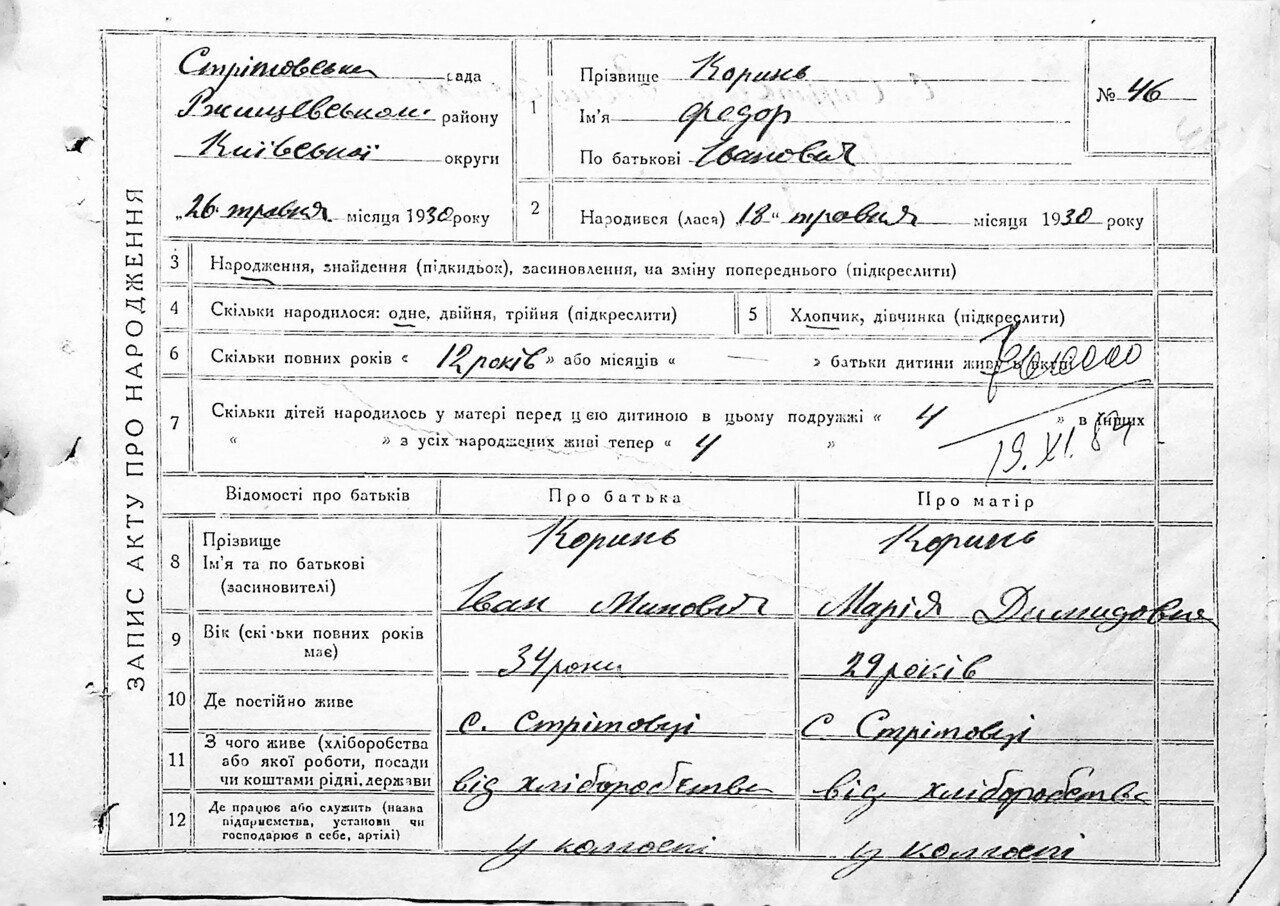 ЗАПИС АКТУ ПРО НАРОДЖЕННЯ
Стрітовська сада
Ржищевського району
Київської округи
„26 травня місяця 1930 року
1
Прізвище Коринь
Ім'я Федор
По батькові Іванович
№ 46
2 Народився (лася) „18“ травня місяця 1930 року
3 Народження, знайдення (підкидьок), засиновлення, на зміну попереднього (підкреслити)
4 Скільки народилося: одне, двійня, трійня (підкреслити)
5 Хлопчик, дівчинка (підкреслити)
6 Скільки повних років « 12 років » або місяців « — » батьки дитини живуть вкупі
7 Скільки дітей народилось у матері перед цією дитиною в цьому подружжі « 4 » в інших
« » з усіх народжених живі тепер « 4 »
19.XI.
Відомості про батьків Про батька Про матір
8 Прізвище Коринь Коринь
Ім'я та по батькові
(засиновителі) Іван Минович Марія Димидовна
9 Вік (скі·ьки повних років
має) 34 роки 29 років
10 Де постійно живе с. Стрітовці С. Стрітовці
11 З чого живе (хліборобства
або якої роботи, посади
чи коштами рідні, держави від хліборобства від хліборобства
12 Де працює або служить (назва
підприємства, установи чи
господарює в себе, артілі) у колгоспі у колгоспі